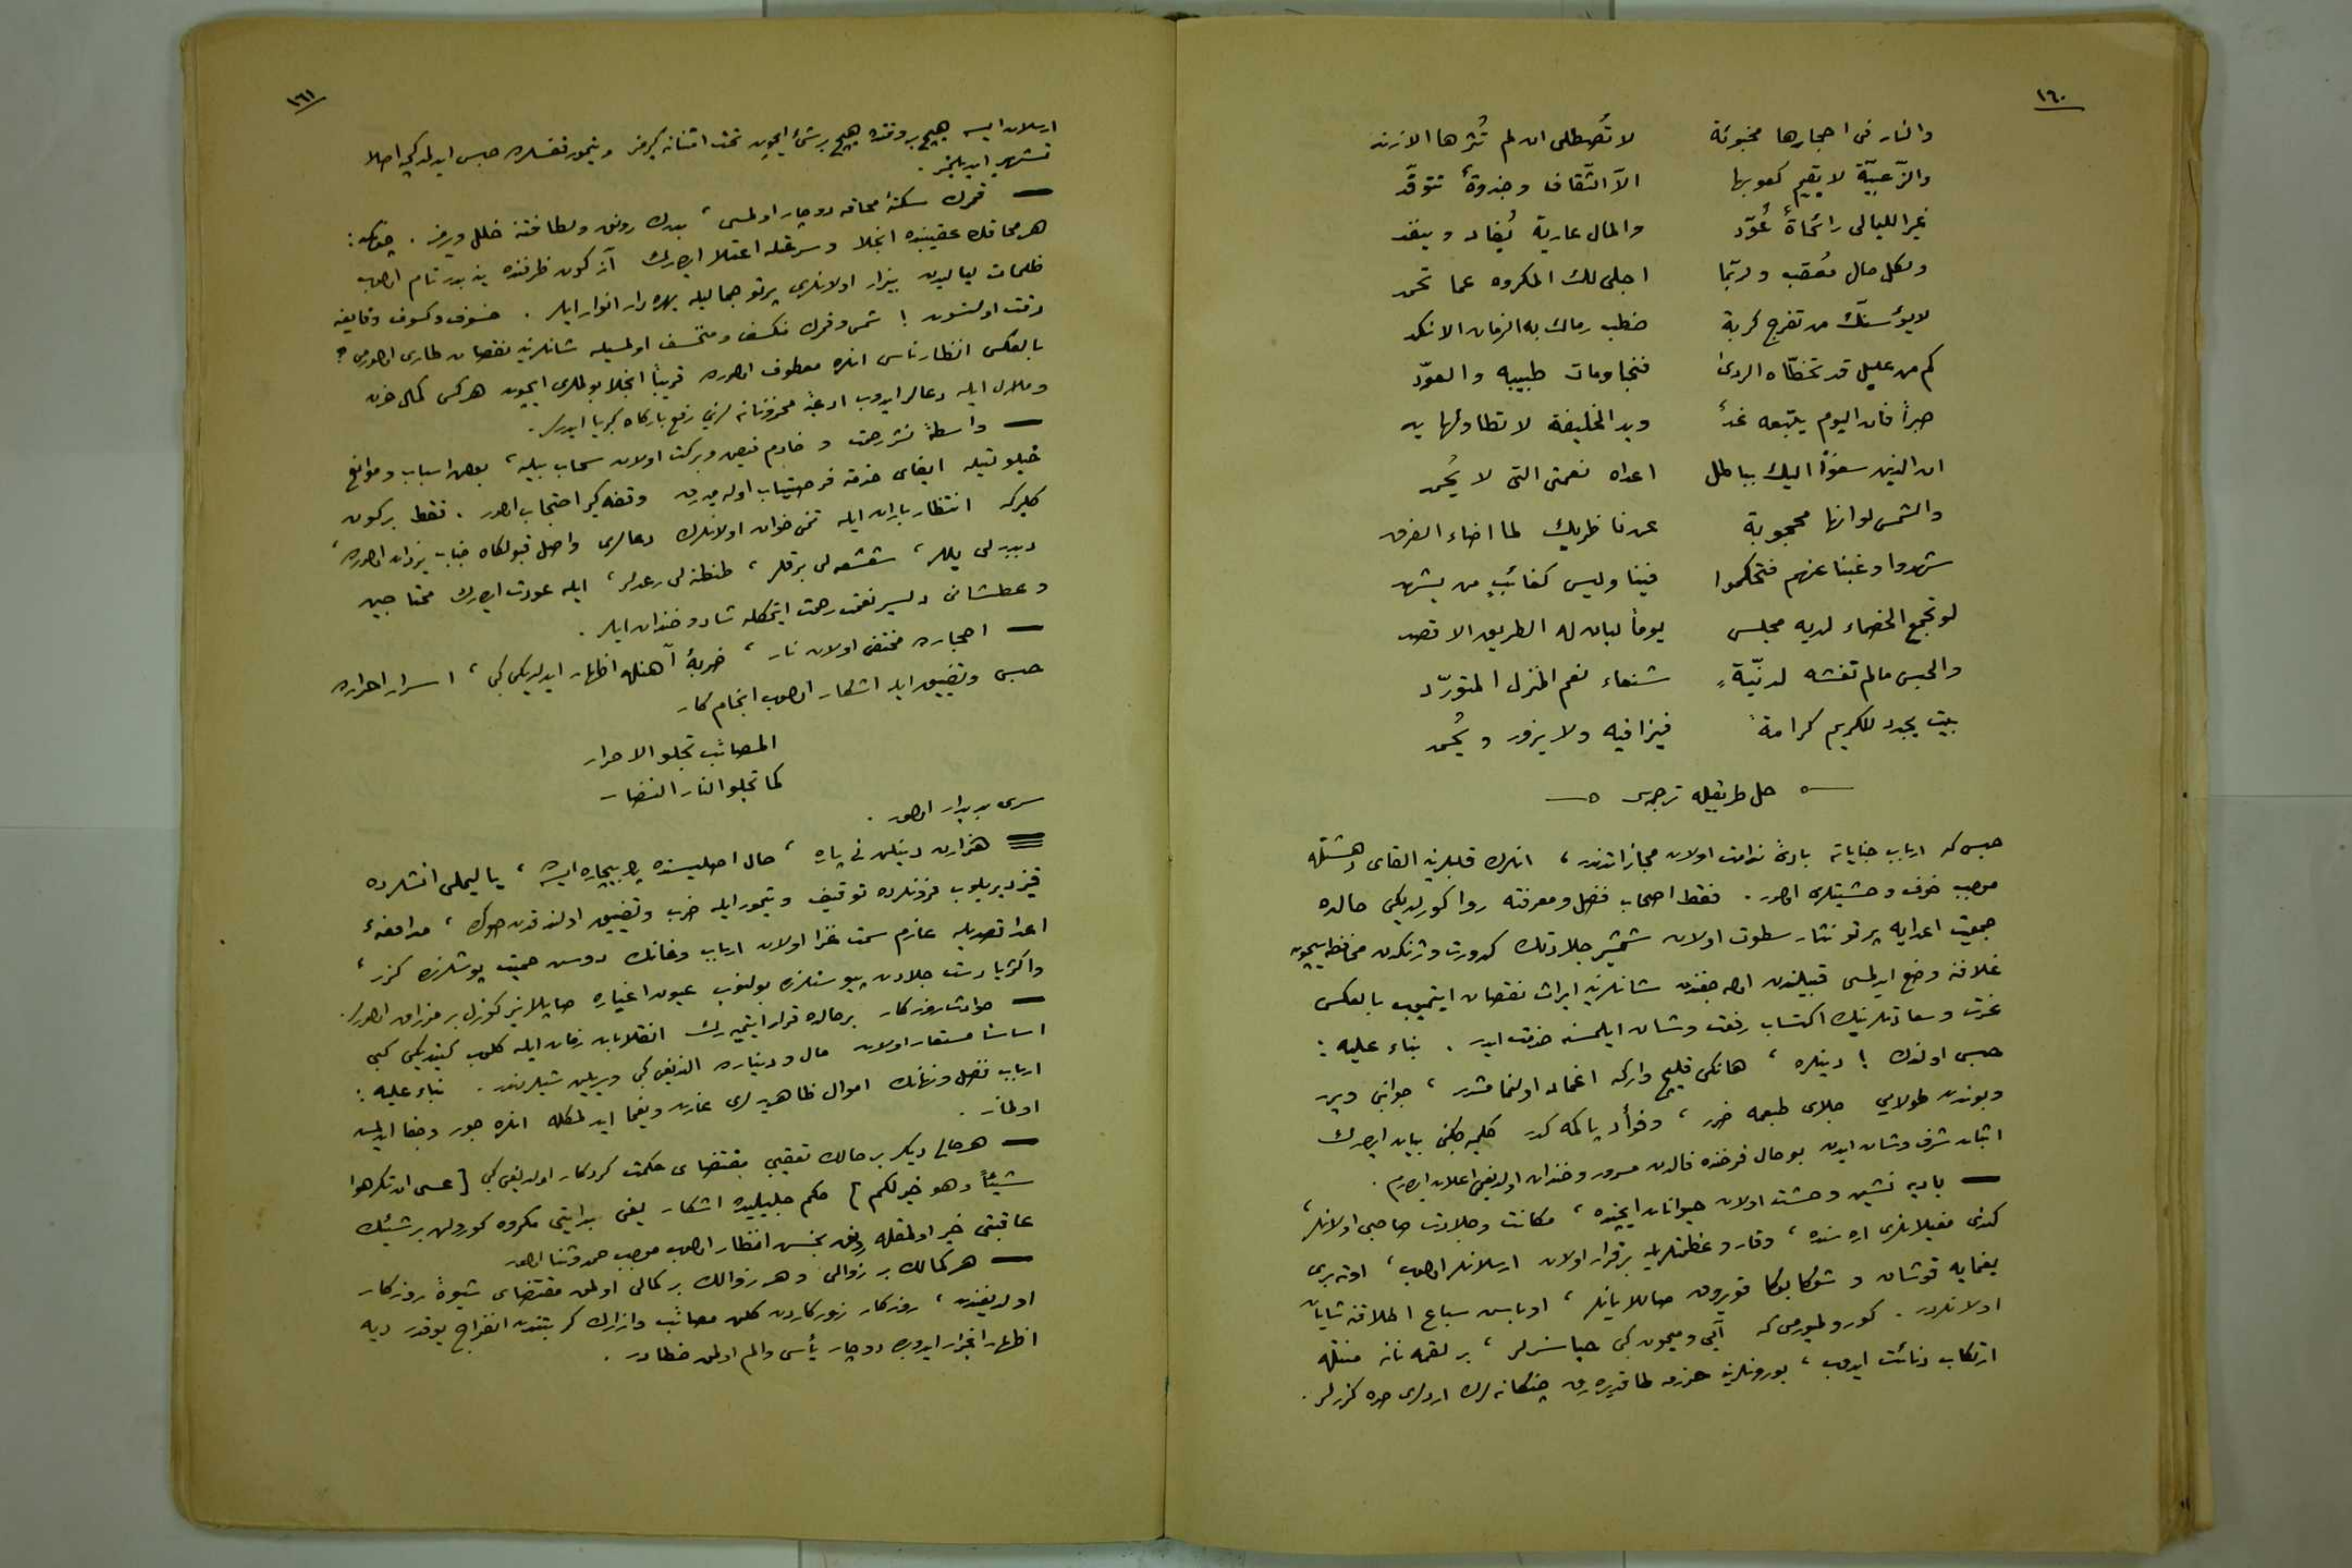 ١٦٠
والنار فى احجارها مخبوئة لا تُصطلى ان لم تُثرها الازند
والزّعبيّة لا يقيم كعوبها الّا الثّقاف وجذوةٌ تتوقّد
غير الليالى عُوّد والمال عارية يُفاد وينفد
ولكل حال معُقب ولربّما اجلى لك المكروه عما تحمد
لايؤسنّك من تفرج كربة خطب رماك به الزمان الانكد
كم من عليل قد تخطّاه الردى فنجا ومات طبيبه والعوّد
صبراً فان اليوم يتبعه غدٌ ويد الخليفة لا تطاولها يد
ان الذين سعَوْا اليك بباطل اعداء نعمتى التى لا يُحمد
والشمس لولا انها محجوبة عن ناظريك لما اضاء الفرقد
شهدوا وغبنا عنهم فتحكموا فينا وليس كغائبٍ من يشهد
لو تجمع الخصماء لديه مجلس يوماً لبان له الطريق الاقصد
والحبس مالم تغشه لدنيّةٍ شنعاء نعم المنزل المتورّد
بيت يجدد للكريم كرامةً فيزار فيه ولا يزور ويُحمد
حل طريقيله ترجمه سى
حبس كه ارباب جناياته بادئ ندامت اولان مجازاتدندر ، انلرك قلبلرينه القاى دهشتله
موجب خوف وخشيتلرى اولور . فقط اصحاب فضل ومعرفته روا كورلديكى حالده
جمعيت اعدايه پرتو نثار سطوت اولان شمشير جلادتك كدورت وژنكدن محافظه ايچون
غلافنه وضع ايدلمسى قبيلندن اوله جغندن شانلرينه ايراث نقصان ايتميوب بالعكس
عزت وسعادتلرينك اكتساب رفعت وشان ايلمسنه خدمت ايدر . بناء عليه :
حبس اولندك ! دينلره ، هانكى قليچ واركه اغماد اولنمامشدر ، جوابنى ويرر
وبوندن طولايى جلاى طبعمه ضرر ، وفؤاد پاكمه كدر كلميه جكنى بيان ايدرك
اثبات شرف وشان ايدن بوحال فرخنده فالدن مسرور وخندان اولديغمى اعلان ايدرم .
— باديه نشين وحشت اولان حيوانات ايچنده ، مكانت وجلادت صاحبى اولانلر ،
كندى مغيلانلرى اره سنده ، وقار وعظمتلريله برقرار اولان ارسلانلر اولوب ، اوته برى
يغمايه قوشان و شوكا بوكا قويروق صاللايانلر ، اوباش سباع اطلاقنه شايان
اولانلردر . كورولميورمى كه آيى وميمون كبى حياسزلر ، بر لقمه نانه منتله
ارتكاب دنائت ايدوب ، بورونلرينه خزمه طاقديره رق چنكانه لرك اردلرى صره كزرلر .
١٦١
ارسلان ايسه هيچ بر وقتده هيچ بر شئ ايچون تحت امتنانه كيرمز و تيمور قفسلره حبس ايدلدكجه اصلا
تشهير ايديلمز .
— قمرك سكنهٔ محاقه دوچار اولمسى ، بدرك رونق ولطافتنه خلل ويرمز . چونكه :
هر محاقك عقيبنده انجلا و سرقتله اعتلا ايدرك آز كون ظرفنده ينه بدر تام اولوب
ظلمات لياليدن بيزار اولانلرى پرتو جماليله بهره دار انوار ايلر . خسوف وكسوف وقايعنه
دقت اولنسون ! شمس وقمرك منكسف ومنخسف اولمسيله شانلرينه نقصان طارى اولورمى ؟
بالعكس انظار ناس انلره معطوف اولهرق قريباً انجلا بولملرى ايچون هركس كمال حزن
وملال ايله دعالر ايدوب ادعيهٔ محزونانه لرينى رفع باركاه كبريا ايدرلر .
— واسطهٔ نشر رحمت و خادم فيض وبركت اولان سحاب بيله ، بعض اسباب وموانع
حيلولتيله ايفاى خدمته فرصتياب اوله ميه رق وقفه كير احتجاب اولور . فقط بركون
كليركه انتظار باران ايله تمنى خوان اولانلرك دعالرى واصل قبولكاه جناب يزدان اولهرق ،
دبدبه لى يللر ، شعشعه لى برقلر ، طنطنه لى رعدلر ، ايله عودت ايدرك محتاجين
وعطشانى دلسير نعمت رحمت ايتمكله شاد وخندان ايلر .
— احجارده مختفى اولان نار ، ضربهٔ آهنله اظهار ايدلديكى كبى ، اسرار احرارده
حبس وتضييق ايله اشكار اولوب انجام كار
المصائب تجلو الاحرار
كما تجلو النار النضار
سرى پديدار اولور .
هزاران دينيلن نى پاره ، حال اصليسنده پك بيچاره ايسه ، ياليملى اتشلرده
قيزديريلوب فرونلرده توقيف و تيمور ايله ضرب وتضييق اولندقدن صوكره ، مدافعهٔ
اعدا قصديله عازم سمت غزا اولان ارباب وغانك دوش حميت پوشلرنده كزر ،
واكثريا دست جلادت پيوستلرنده بولنوب عيون اغياره صاپلانير كوزل بر مزراق اولور .
— حوادث روزكار برحالده قرار ايتميه رك انقلابات زمان ايله كلوب كيتديكى كبى
اساساً مستعار اولان مال و ديناره الديغى كبى ويريلن شيلردندر . بناء عليه :
ارباب فضل ونهانك اموال ظاهريه لرى غارت ويغما ايدلمكله انلره جور وجفا ايدلمش
اولماز .
— هر حالى ديكر بر حالك تعقيبى مقتضاى حكمت كردكار اولديغى كبى [ عسى ان تكرهوا
شيئاً وهو خير لكم ] حكم جليليده اشكار يعنى بدايتى مكروه كورولن بر شيئك
عاقبتى خير اولمقله رونق بخش انظار اولوب موجب حمد وثنا اولور
— هر كمالك بر زوالى و هر زوالك بر كمالى اولمق مقتضاى شيوهٔ روزكار
اولديغندن ، روزكار زوركاردن كلن مصائب وازارك كربتندن انفراج يوقدر ديه
اظهار انجرار ايدوب دوچار يأس والم اولمق خطادر .